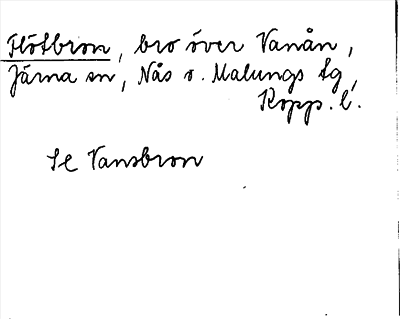 Flötbron, bro över Vanån,
Järna sn, Nås o. Malungs tg,
Kopp. l.
Se Vansbron